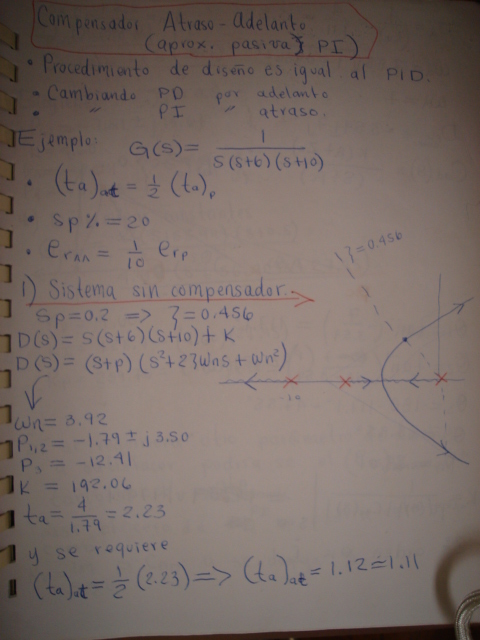 Compensador Atraso-Adelanto
(aprox. pasiva PI)
• Procedimiento de diseño es igual al PID.
• Cambiando PD por adelanto
• " PI " atraso.
Ejemplo: G(s) = 1 / s(s+6)(s+10)
• (ta)at = 1/2 (ta)p
• Sp% = 20
• erAA = 1/10 erp
ξ = 0.456
1) Sistema sin compensador.
Sp = 0.2 => ξ = 0.456
D(s) = s(s+6)(s+10) + K
D(s) = (s+p)(s²+2ξWns + Wn²)
-10
Wn = 3.92
P1,2 = -1.79 ± j3.50
P3 = -12.41
K = 192.06
ta = 4/1.79 = 2.23
y se requiere
(ta)at = 1/2 (2.23) => (ta)at = 1.12 ≐ 1.11